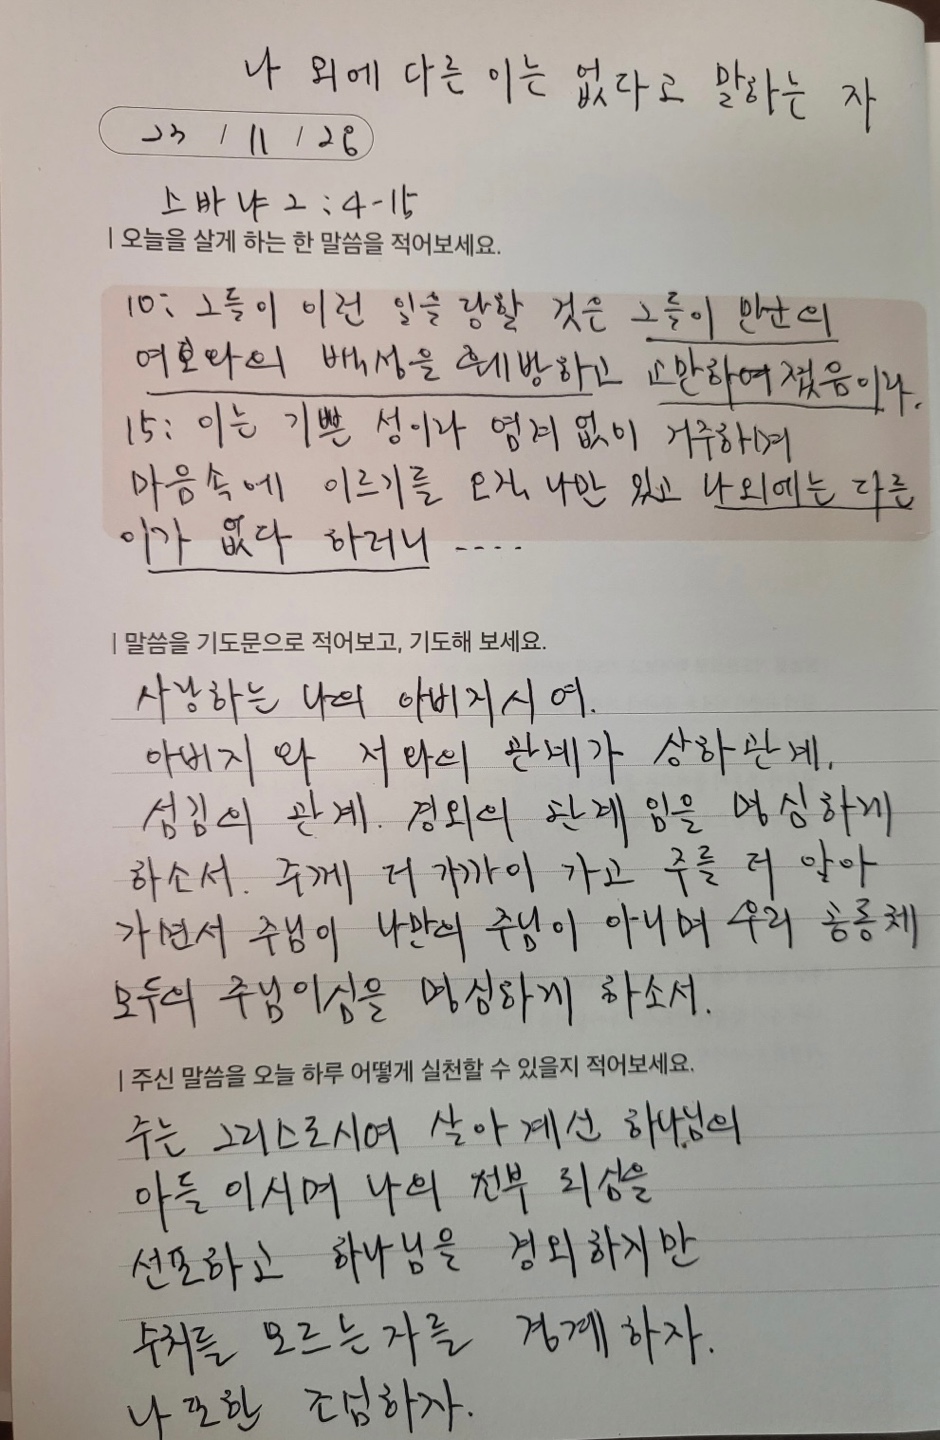 나 외에 다른 이는 없다고 말하는 자
23 / 11 / 28
스바냐 2:4-15
| 오늘을 살게 하는 한 말씀을 적어보세요.
10: 그들이 이런 일을 당할 것은 그들이 만군의
여호와의 백성을 훼방하고 교만하여졌음이라.
15: 이는 기쁜 성이라 염려 없이 거주하며
마음속에 이르기를 오직 나만 있고 나 외에는 다른
이가 없다 하더니 ....
| 말씀을 기도문으로 적어보고, 기도해 보세요.
사랑하는 나의 아버지시여.
아버지와 저와의 관계가 상하관계,
섬김의 관계. 경외의 관계임을 명심하게
하소서. 주께 더 가까이 가고 주를 더 알아
가면서 주님이 나만의 주님이 아니며 우리 공동체
모두의 주님이심을 명심하게 하소서.
| 주신 말씀을 오늘 하루 어떻게 실천할 수 있을지 적어보세요.
주는 그리스도시여 살아계신 하나님의
아들이시며 나의 전부 되심을
선포하고 하나님을 경외하지만
수치를 모르는자를 경계하자.
나 또한 조심하자.